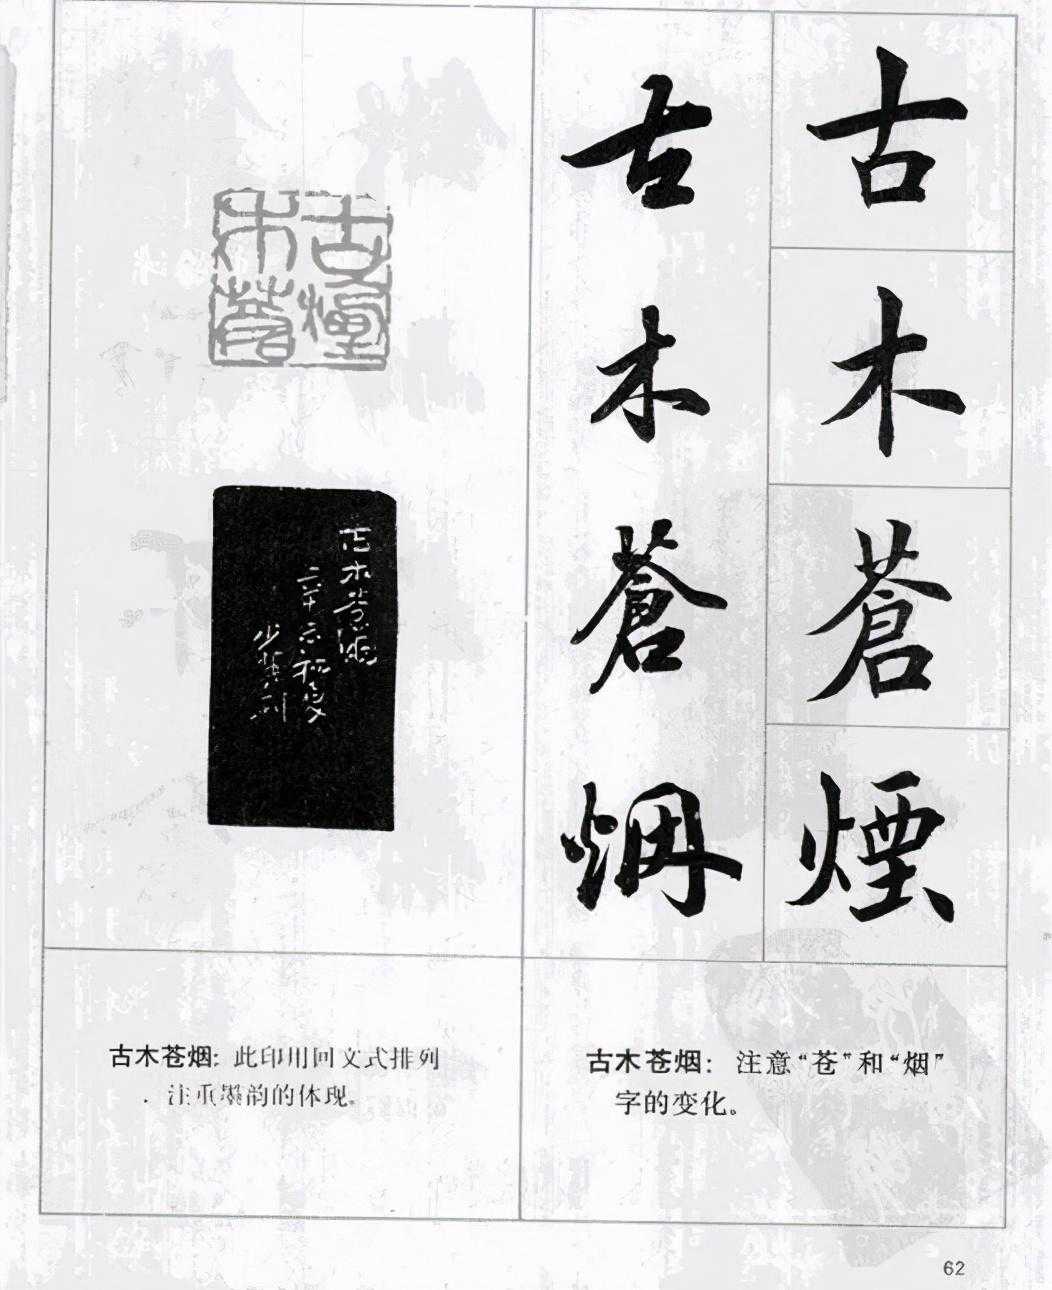 古木蒼煙
古木蒼烟
古木
蒼煙
古木苍烟
辛亥初夏
少其刻
古木苍烟：此印用回文式排列
注重墨韵的体现。
古木苍烟：注意“苍”和“烟”
字的变化。
62